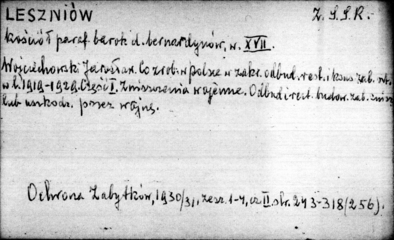 LESZNIÓW Z.S.S.R.
kościół paraf. barok. d. bernardynów, w. XVII.
Wojciechowski Jarosław. Co zrob. w Polsce w zakr. odbud. rest. i kons. zab. szt.
w l. 1919-1929. Część I. Zniszczenia wojenne. Odbud. i rest. budow. zab. znisz.
lub uszkodz. przez wojnę.
Ochrona Zabytków, 1930/31, zesz. 1-4, cz. II str. 243-318 (256).